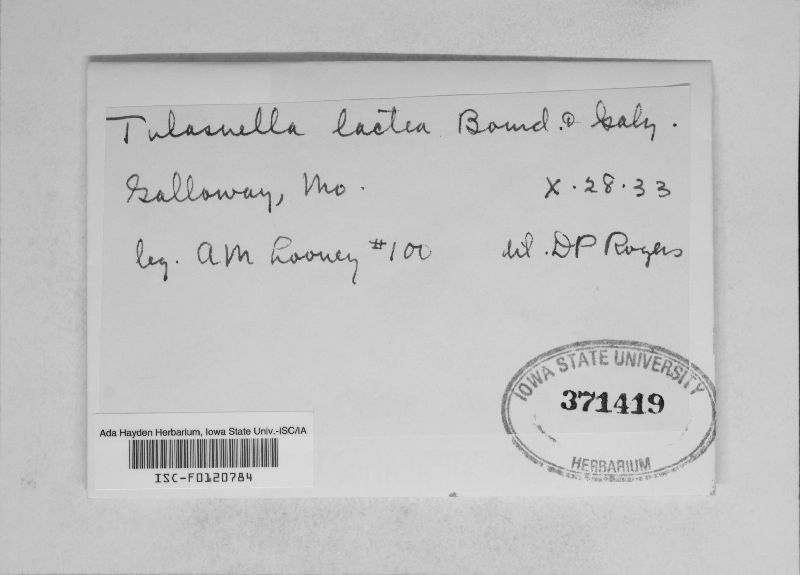 Tulasnella lactea Bourd. & Galz.
Galloway, Mo.
X.28.33
leg. AM Looney #100
det. DP Rogers
IOWA STATE UNIVERSITY
371419
HERBARIUM
Ada Hayden Herbarium, Iowa State Univ.-ISC/IA
ISC-F0120784